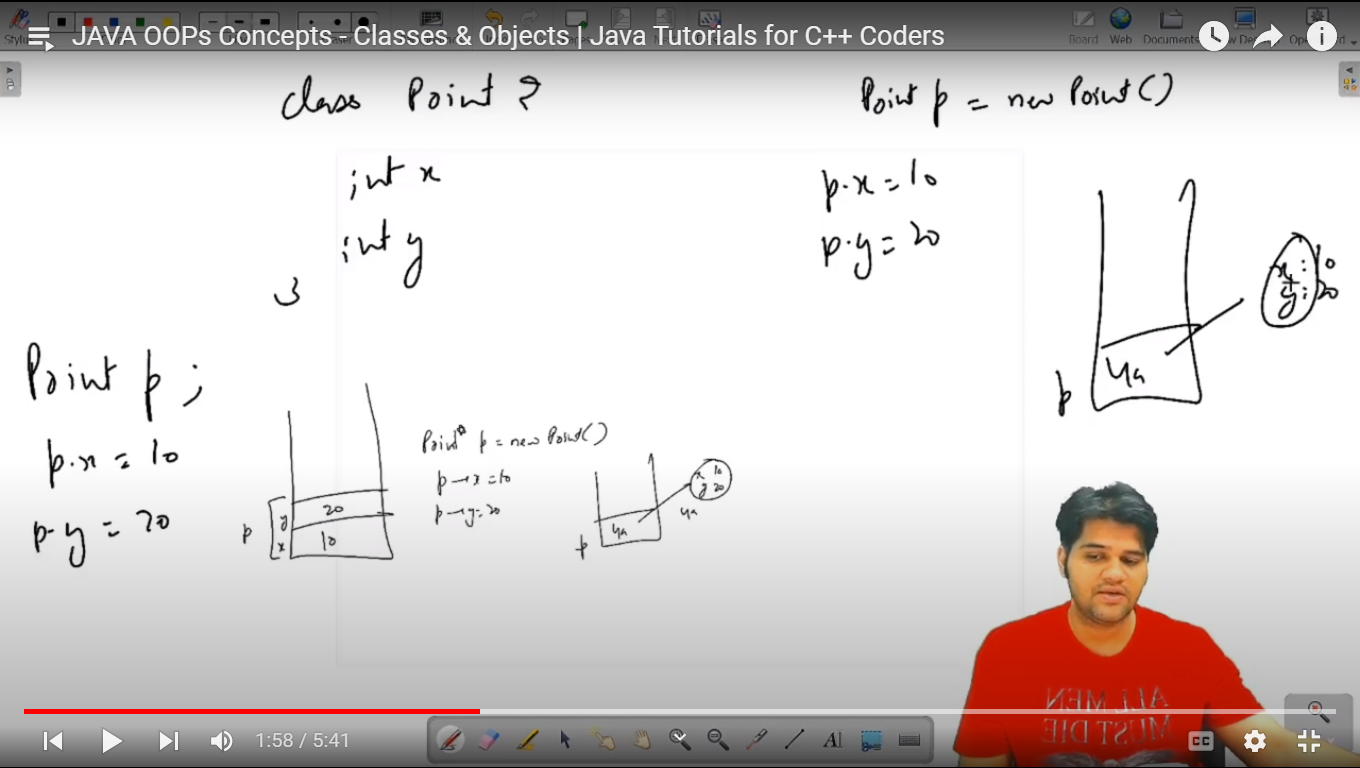 JAVA OOPs Concepts - Classes & Objects | Java Tutorials for C++ Coders
Board Web Documents
class Point {
int x
int y
}
Point p = new Point()
p.x = 10
p.y = 20
x : 10
y : 20
4a
p
Point p ;
p.x = 10
p.y = 20
p
y 20
x 10
Point* p = new Point()
p→x = 10
p→y = 20
x 10
y 20
4a
4a
p
ALL MEN
MUST DIE
1:58 / 5:41
AI
CC